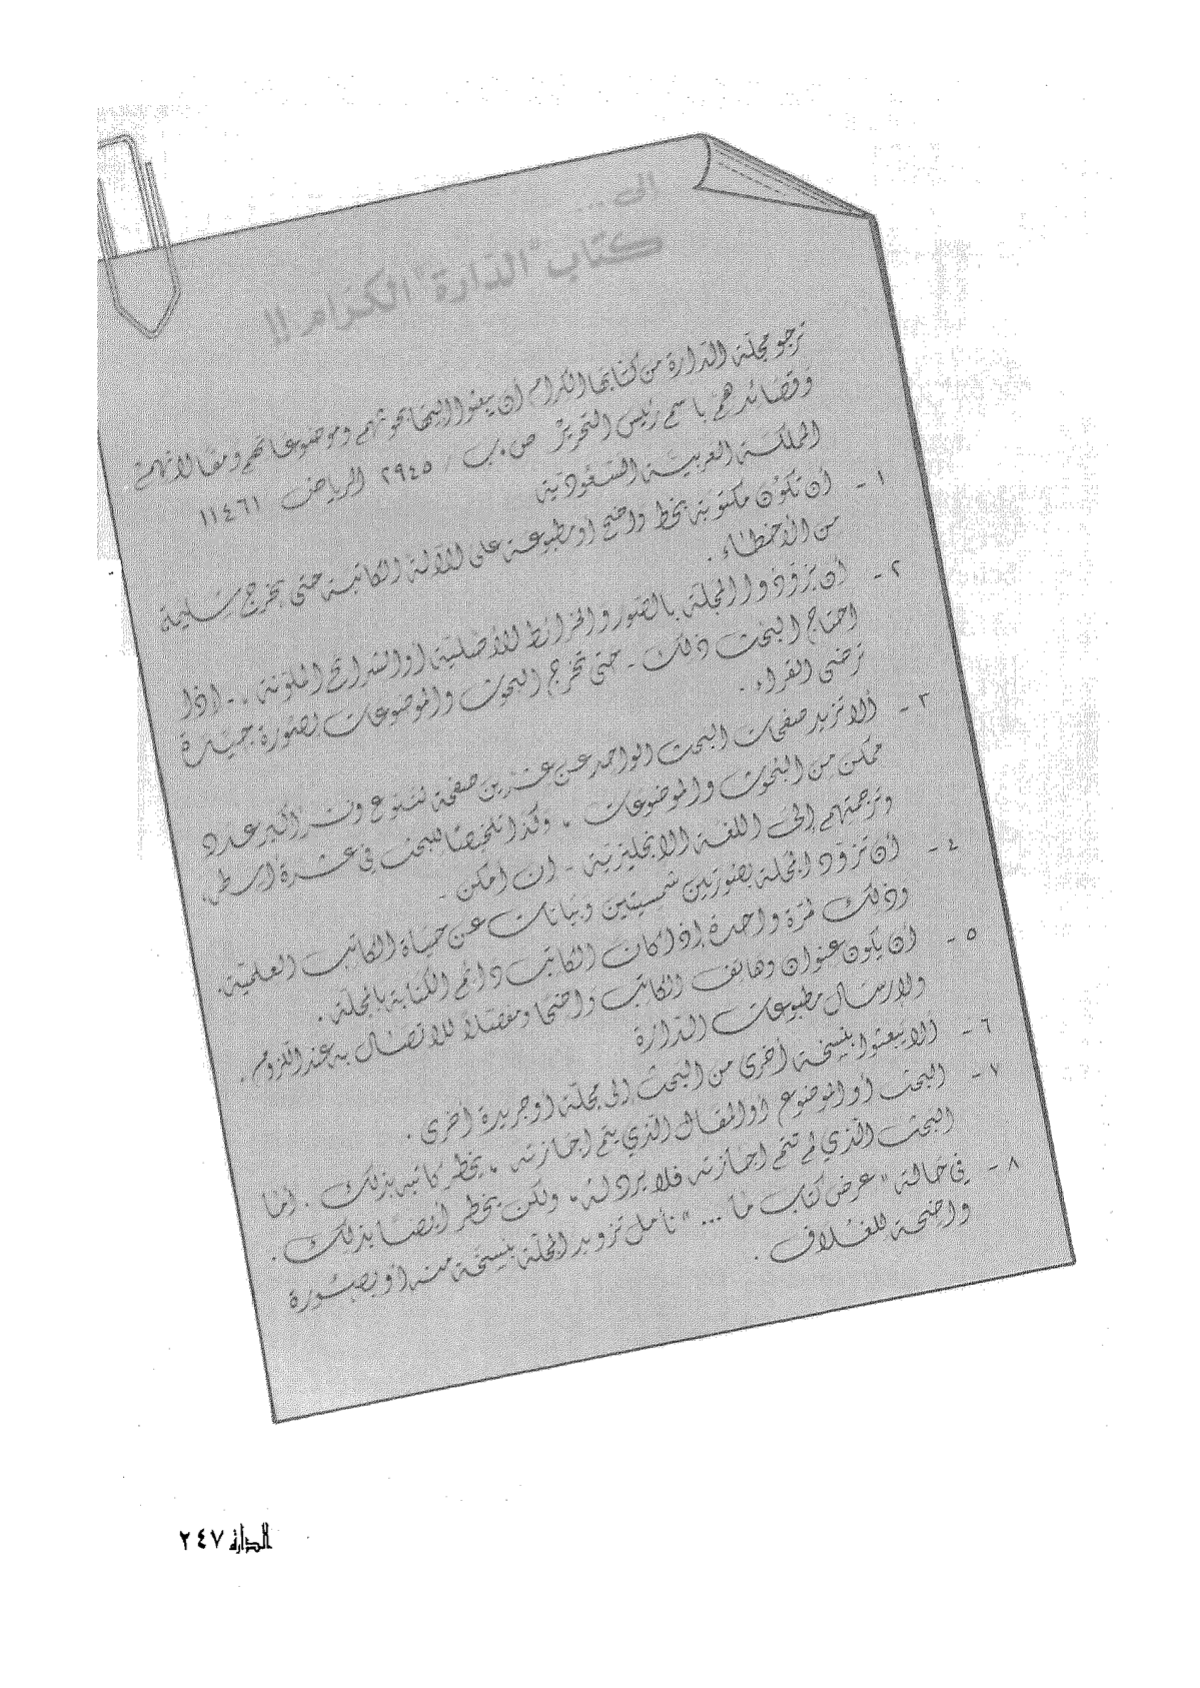 الى ...
كتاب "الدارة" الكرام !!
ترجو مجلة الدارة من كتابها الكرام ان يبعثوا اليها بحوثهم وموضوعاتهم ومقالاتهم
وقصائدهم باسم رئيس التحرير ص.ب / ٢٩٤٥ الرياض ١١٤٦١
المملكة العربية السعودية
١ - أن تكون مكتوبة بخط واضح أو مطبوعة على الآلة الكاتبة حتى تخرج سليمة
من الأخطاء .
٢ - أن يزودوا المجلة بالصور والخرائط الأصلية أو الشرائح الملونة ، - إذا
احتاج البحث ذلك - حتى تخرج البحوث والموضوعات بصورة جيدة
ترضى القراء .
٣ - ألا تزيد صفحات البحث الواحد عن عشرين صفحة لتنوع ونشر أكبر عدد
ممكن من البحوث والموضوعات ، وكذا تلخيصًا للبحث في عشرة أسطر
وترجمتهم إلى اللغة الانجليزية - ان امكن -
٤ - أن تزود المجلة بصورتين شمسيتين وبيانات عن حياة الكاتب العلمية.
وذلك لمرة واحدة إذا كان الكاتب دائم الكتابة بالمجلة .
٥ - أن يكون عنوان وهاتف الكاتب واضحًا ومفصلاً للاتصال به عند اللزوم .
ولارسال مطبوعات الدارة
٦ - ألا يبعثوا بنسخة أخرى من البحث إلى مجلة أو جريدة أخرى .
٧ - البحث أو الموضوع أو المقال الذي يتم اجازته ، يخطر كاتبه بذلك . أما
البحث الذي لم تتم اجازته فلا يرد له، ولكن يخطر أيضًا بذلك .
٨ - في حالة "عرض كتاب ما ..." نأمل تزويد المجلة بنسخة منه أو بصورة
واضحة للغلاف .
الدارة ٢٤٧